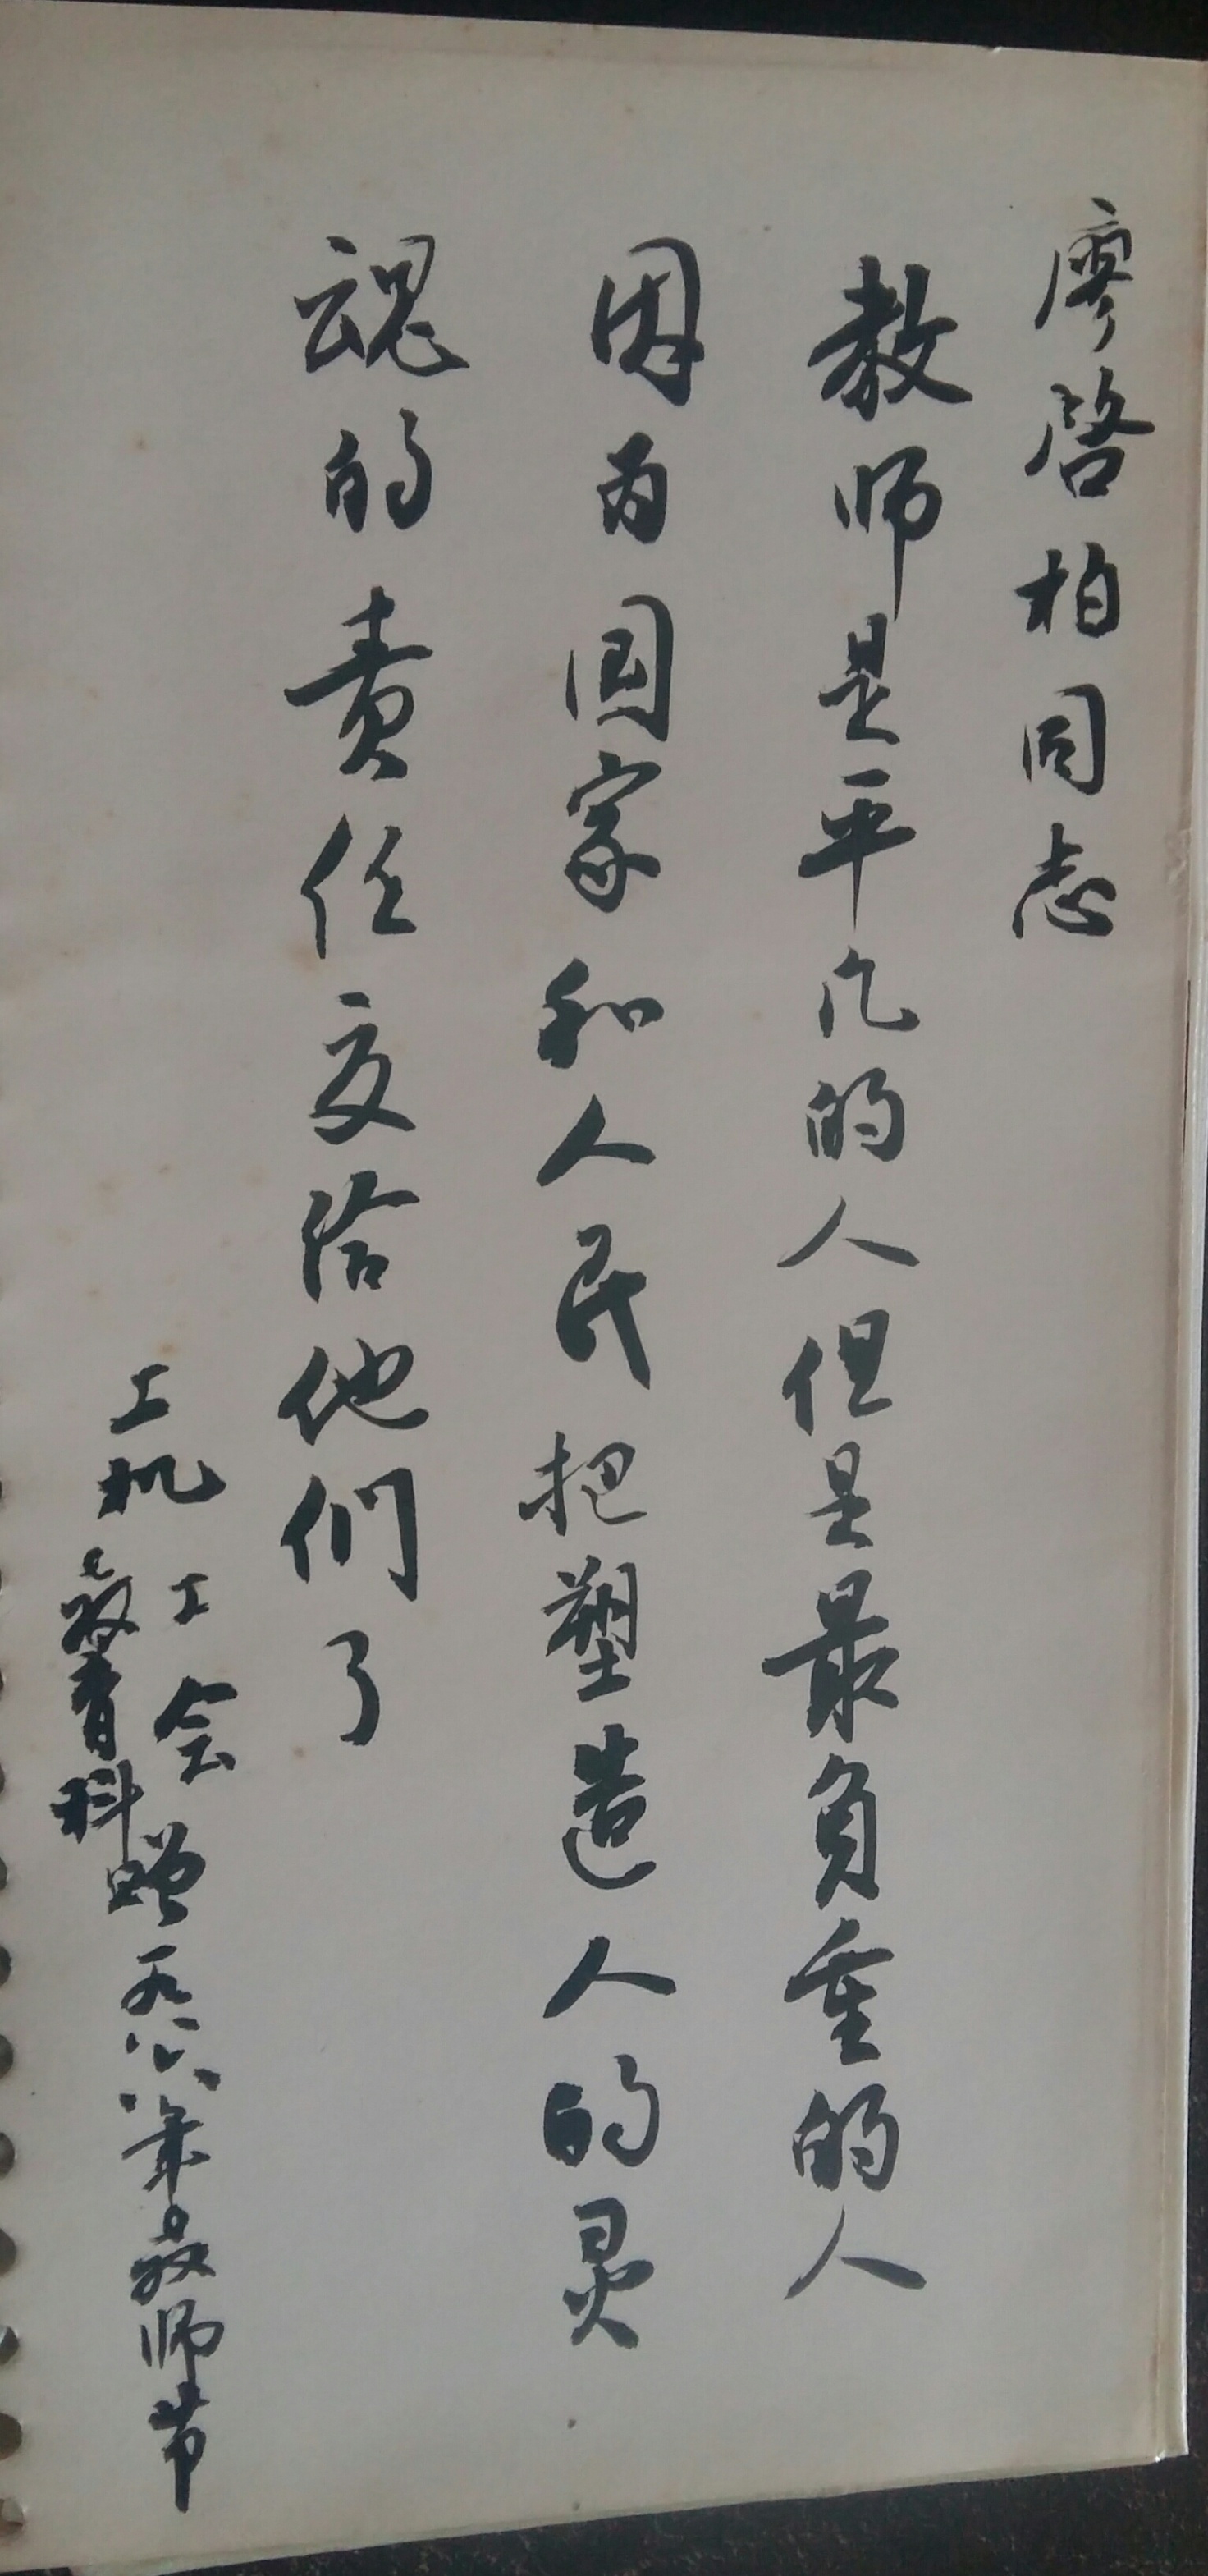 廖啓柏同志
教师是平凡的人但是最负重的人
因为国家和人民把塑造人的灵
魂的责任交给他们了
工机工会
教育科
赠一九八六年教师节